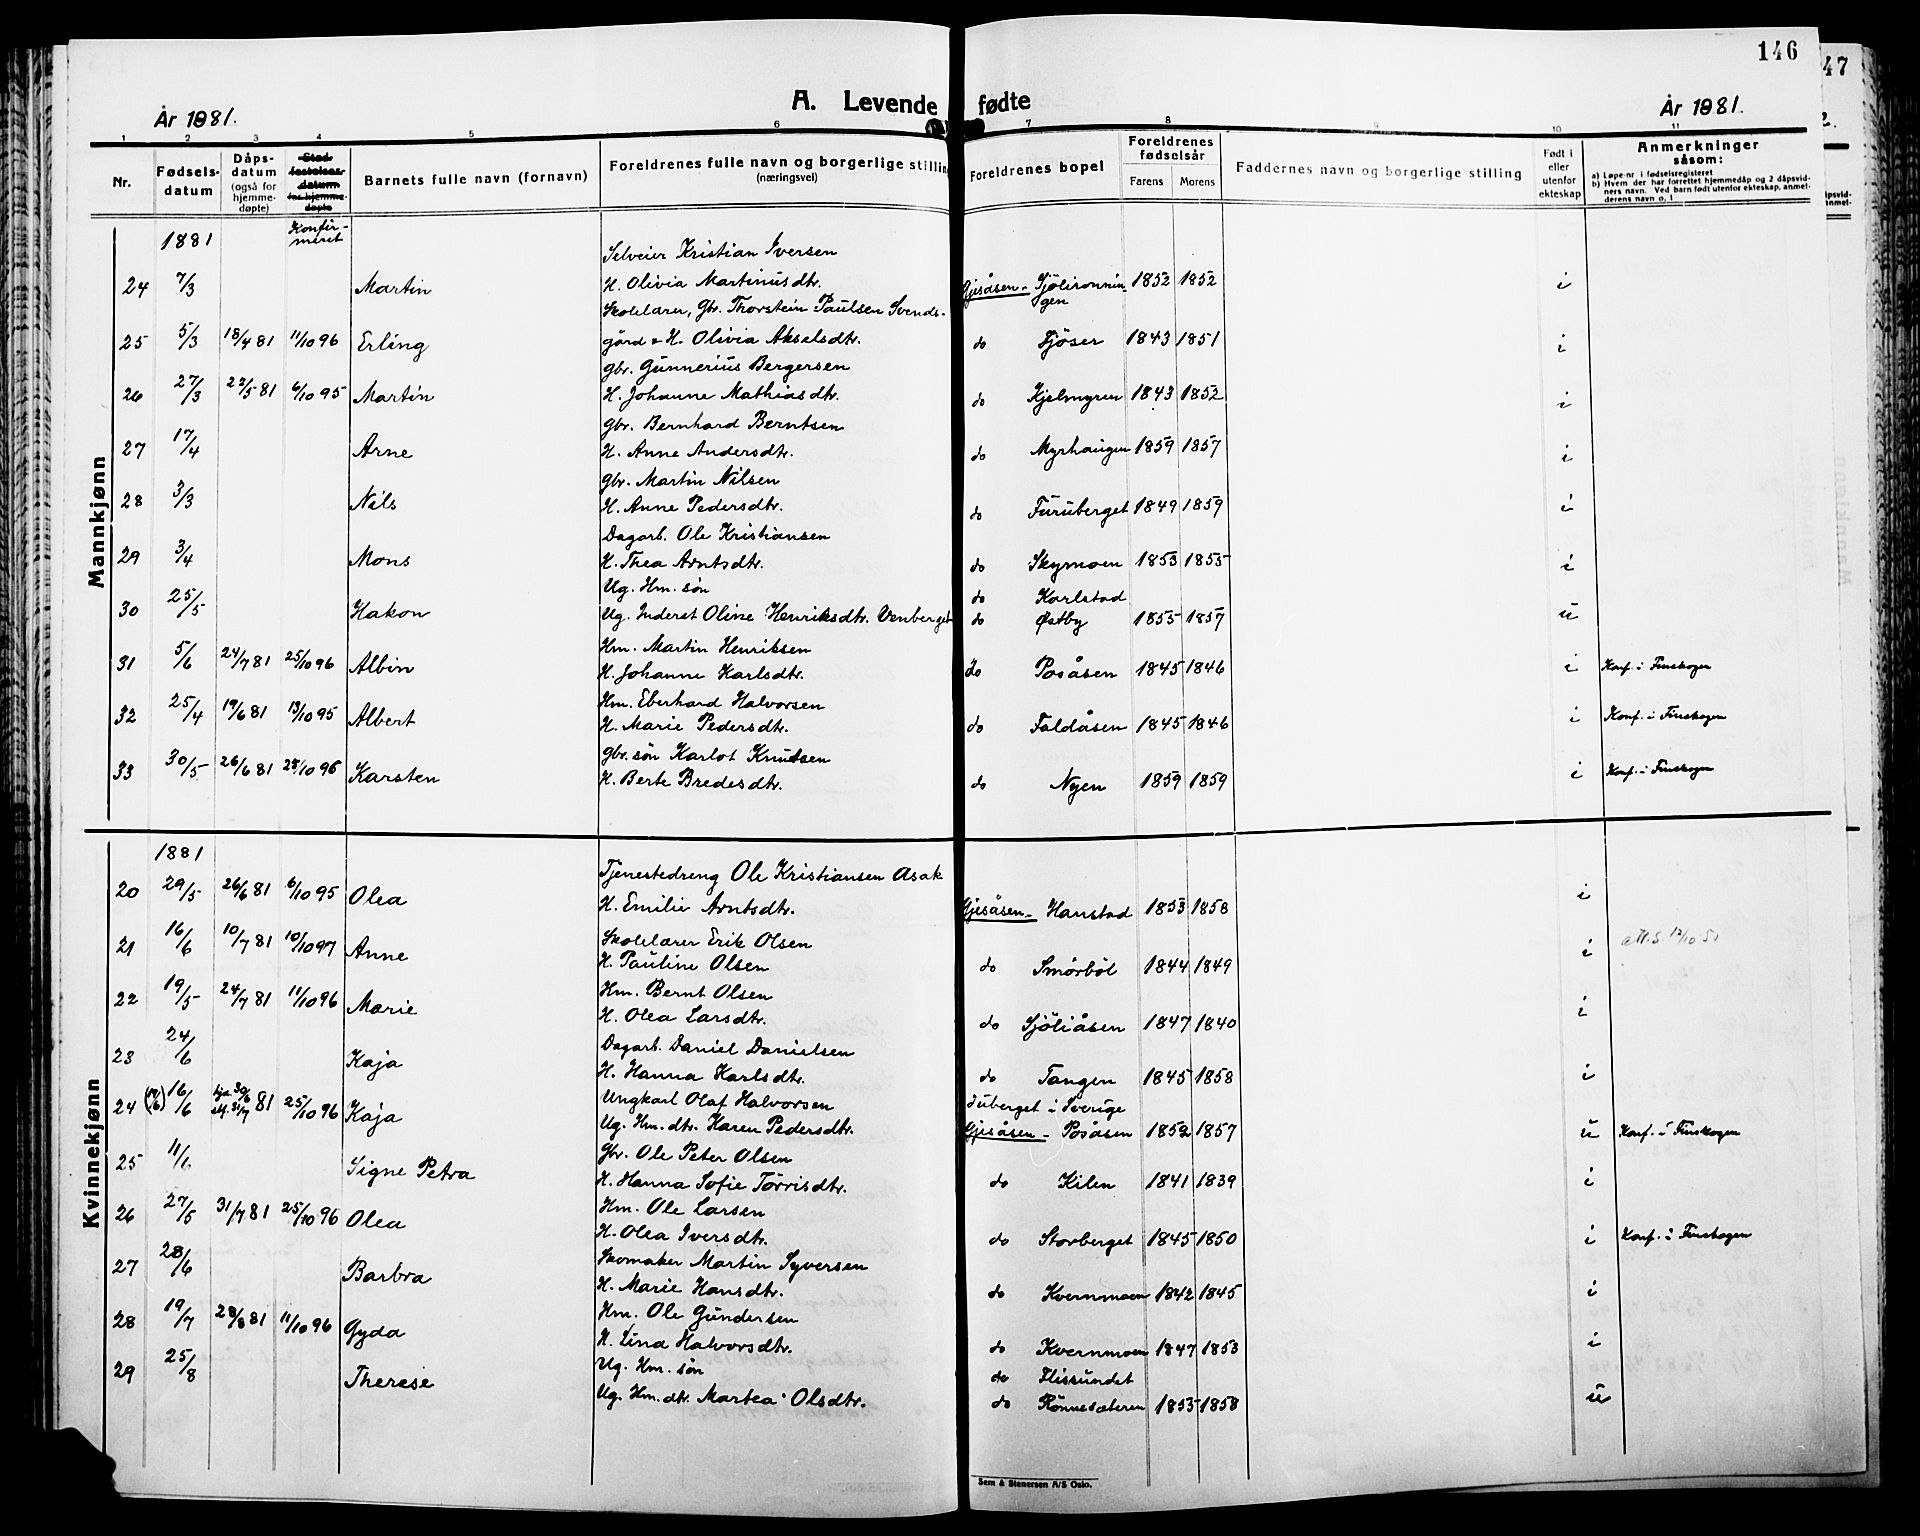 146
47
A. Levende fødte
År 1881.
År 1881.
2.
1 2 3 4 5 6 7 8 9 10 11
Nr. Fødsels-datum Dåps-datum (også for hjemme-døpte) Stad-festelses-datum for hjemme-døpte Barnets fulle navn (fornavn) Foreldrenes fulle navn og borgerlige stilling (næringsvei) Foreldrenes bopel Foreldrenes fødselsår Farens Morens Faddernes navn og borgerlige stilling Født i eller utenfor ekteskap Anmerkninger såsom:
a) Løpe-nr. i fødselsregisteret
b) Hvem der har forrettet hjemmedåp og 2 dåpsvidners navn. Ved barn født utenfor ekteskap, anmelderens navn o. l
Mannkjønn
1881 Konfir-meret
Selveier Kristian Iversen
24 7/3 Martin H. Olivia Martinusdtr. Gjesåsen - Sjölironningen 1852 1852 i
Skolelærer, Gbr. Thorstein Paulsen Svends-
25 5/3 18/4 81 11/10 96 Erling gård & H. Olivia Akselsdtr. do Sjöser 1843 1851 i
Gbr. Gunnerius Bergersen
26 27/3 22/5 81 6/10 95 Martin H. Johanne Mathiasdtr. do Kjelmyren 1843 1852 i
Gbr. Bernhard Berntsen
27 17/4 Arne H. Anne Andersdtr. do Myrhaugen 1859 1857 i
Gbr. Martin Nilsen
28 3/3 Nils H. Anne Pedersdtr. do Furuberget 1849 1859 i
Dagarb. Ole Kristiansen
29 3/4 Mons H. Thea Arntsdtr. do Skymoen 1853 1855 i
Ug. Hm. søn do Karlstad
30 25/5 Hakon Ug. Inderst Oline Henriksdtr. Venberget do Østby 1855 1857 u
Hm. Martin Henriksen
31 5/6 24/7 81 25/10 96 Albin H. Johanne Karlsdtr. do Posåsen 1845 1846 i Konf. i Finskogen
Hm. Eberhard Halvorsen
32 25/4 19/6 81 13/10 95 Albert H. Marie Pedersdtr. do Faldåsen 1845 1846 i Konf. i Finskogen
Gbr. søn Karlot Knutsen
33 30/5 26/6 81 Karsten H. Berte Bredesdtr. do Nyen 1859 1859 i Konf. i Finskogen
Kvinnekjønn
1881
Tjenestedreng Ole Kristiansen Asak
20 29/5 26/6 81 6/10 95 Olea H. Emilie Arntsdtr. Gjesåsen - Hanstad 1853 1858 i
21 16/6 10/7 81 10/10 97 Anne Skolelærer Erik Olsen
H. Pauline Olsen do Smörböl 1844 1849 i
22 19/5 24/7 81 11/10 96 Marie Hm. Bernt Olsen
H. Olea Larsdtr. do Sjöliåsen 1847 1840 i
23 24/6 Kaja Dagarb. Daniel Danielsen
H. Hanna Karlsdtr. do Tangen 1845 1858 i
24 16/6 81 25/10 96 Kaja Ungkarl Olaf Halvorsen Juberget i Sverige
Ug. Hm. dtr. Karen Pedersdtr. Gjesåsen - Posåsen 1852 1857 u Konf. i Finskogen
25 11/6 Signe Petra Gbr. Ole Peter Olsen
H. Hanna Sofie Törrisdtr. do Kilen 1841 1839 i
26 27/5 31/7 81 25/10 96 Olea Hm. Ole Larsen
H. Olea Iversdtr. do Storberget 1845 1850 i Konf. i Finskogen
27 28/6 Barbra Skomaker Martin Syversen
H. Marie Hansdtr. do Kvernmoen 1842 1845 i
28 19/7 28/8 81 11/10 96 Gyda Hm. Ole Gundersen
H. Lina Halvorsdtr. do Kvernmoen 1847 1853 i
29 25/8 Therese Ug. Hm. søn do Flissundet
Ug. Hm. dtr. Martea Olsdtr. do Rönnesæteren 1855 1858 u
Sem & Stenersen A/S Oslo.